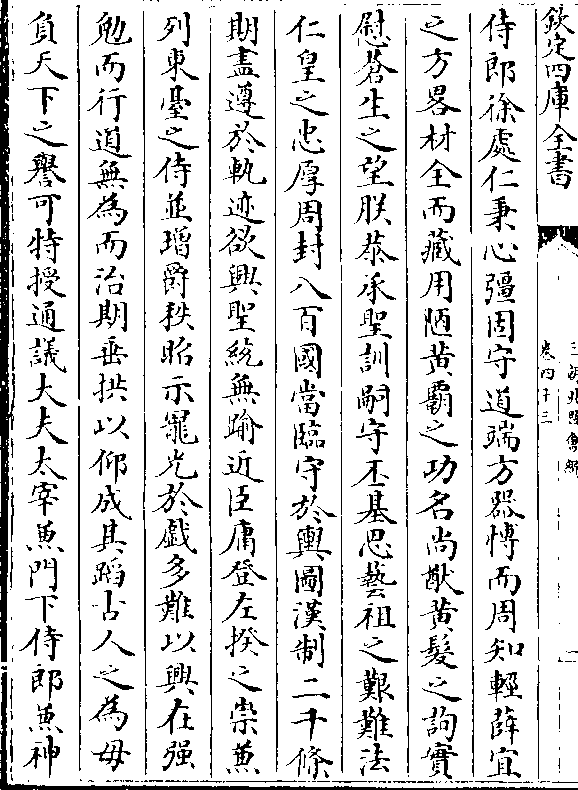 欽定四庫全書
三朝北盟會編
卷四十三
侍郎徐處仁秉心彊固守道端方器博而周知輕薛宣
之方畧材全而藏用陋黄霸之功名尚猷黄髮之詢實
慰蒼生之望朕恭承聖訓嗣守丕基思藝祖之艱難法
仁皇之忠厚周封八百國當臨守於輿圖漢制二千條
期盡遵於軌迹欲興聖統無踰近臣庸登左揆之崇兼
列東臺之侍並增爵秩昭示寵光於戲多難以興在强
勉而行道無為而治期垂拱以仰成其蹈古人之為毋
負天下之譽可特授通議大夫太宰兼門下侍郎兼神